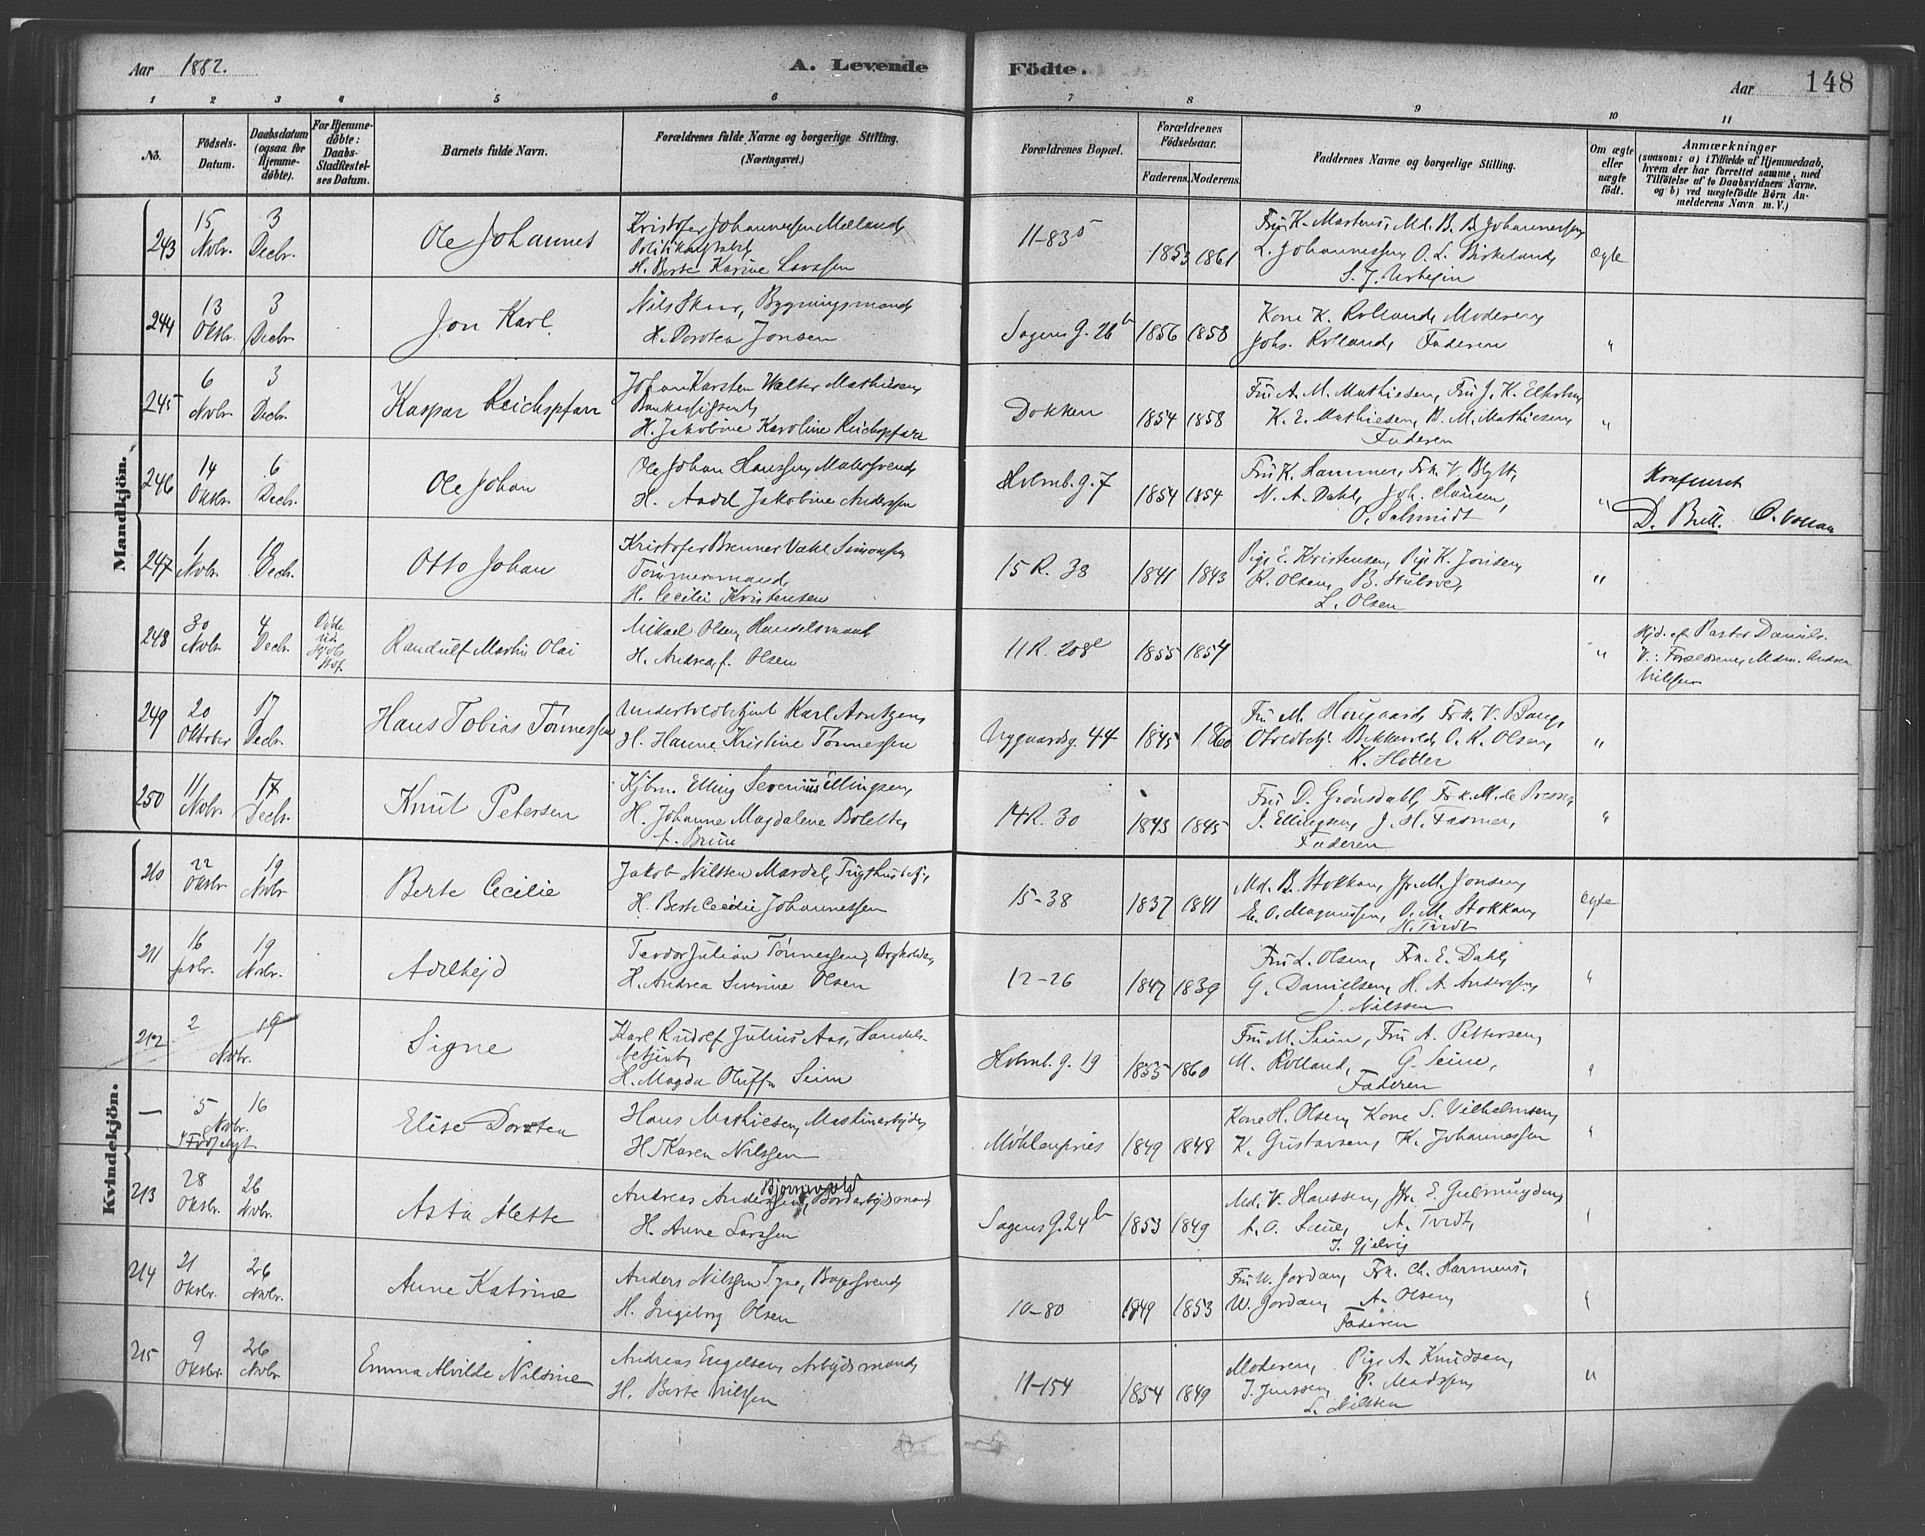 Aar 1882.
A. Levende Födte.
Aar
148
1 2 3 4 5 6 7 8 9 10 11
No.
Födsels-
Datum.
Daabsdatum
(ogsaa for
Hjemme-
döbte).
For Hjemme-
döbte:
Daabs-
Stadfæstel-
ses Datum.
Barnets fulde Navn.
Forældrenes fulde Navne og borgerlige Stilling.
(Næringsvei.)
Forældrenes Bopæl.
Forældrenes
Födselsaar.
Faderens. Moderens.
Faddernes Navne og borgerlige Stilling.
Om ægte
eller
uægte
födt.
Anmærkninger
(saasom: a) i Tilfælde af Hjemmedaab,
hvem der har forrettet samme, med
Tilföielse af to Daabsvidners Navne,
og b) ved uægtefödte Börn An-
melderens Navn m. V.)
Mandkjön.
243 15 Novbr. 3 Decbr. Ole Johannes
Kristofer Johannessen Mæland,
H. Berte Karine Larssen
11-835 1853 1861
Fru K. Martens, Md. B. B. Johannessen,
L. Johannessen, O. L. Birkeland,
ægte
244 13 Oktbr. 3 Decbr. Jon Karl.
Nils Skaar, Bygningsmand,
H. Dorotea Jonsen
Sagens G. 26b 1856 1858
Kone K. Rolland, Moderen,
Johs. Rolland, Faderen
"
245 6 Novbr. 3 Decbr. Kaspar Reichspfarr
Johan Karsten Walter Mathiesen,
H. Jakobine Karoline Reichspfarr
Dokken 1854 1858
Fru A. M. Mathiesen, Fru J. K. Ekholm,
K. E. Mathiesen, B. M. Mathiesen,
Faderen
"
246 14 Oktbr. 6 Decbr. Ole Johan
Ole Johan Hanssen, Malersvend,
H. Aadel Jakobine Anderssen
Holmb. g. 7 1854 1854
Fru K. Hammer, Frk. V. Blytt,
N. A. Dahl, Joh. Clausen,
O. Schmidt
"
Konfereret
247 1 Novbr. 10 Decbr. Otto Johan
Kristofer Brenner Vahl Simonsen
Tømmermand,
H. Cecilie Kristensen
15 R. 38 1841 1843
Pige E. Kristensen, Pige K. Jonsen,
R. Olsen,
L. Olsen
"
248 30 Novbr. 4 Decbr. Randulf Martin Olai
Mikael Olsen, Handelsmand
H. Andrea f. Olsen
11 R. 208c 1855 1854
"
Hjd. af Pastor Daniels.
V.: Forældrene, Mdm. Andrea
Nilssen
249 20 Oktober 17 Decbr. Hans Tobias Tønnessen
Underholdbetjent Karl Arntzen,
H. Hanne Kristine Tønnessen
Nygaardsg. 44 1845 1860
Fru M. Hougaard, Frk. V. Bang,
O. K. Olsen,
"
250 11 Novbr. 17 Decbr. Knut Petersen
Kjbm. Elling Severin Ellingsen,
H. Johanne Magdalene Bolette,
f. Bruun
14 R. 30 1843 1845
Fru D. Grønsdahl, Frk. M. de Besche,
I. Ellingsen, J. H. Fasmer,
Faderen
"
Kvindekjön.
210 22 Oktbr. 19 Novbr. Berte Cecilie
Jakob Nilssen Mardal,
H. Berte Cecilie Johannessen
15-38 1837 1841
Md. B. Stokkan, Jfr. M. Jonsen,
E. O. Magnussen, O. M. Stokkan,
H. Tvedt
ægte
211 16 19 Novbr. Adelhejd
Teodor Julian Tønnessen,
H. Andrea Severine Olsen
12-26 1847 1839
Fru L. Olsen, Frk. E. Dahl,
G. Danielsen, H. A. Anderssen,
J. Nilssen
"
212 2 19 Novbr. Signe
Karl Rudolf Julius Aas, Handels-
betjent,
H. Magda Oluffa Seim
Holmb. G. 19 1855 1860
Fru M. Seim, Fru A. Pettersen,
M. Rolland, G. Seim,
Faderen
"
— 5 16 Novbr. Elise Dorotea
Hans Mathiesen, Maskinarbejder
H. Karen Nilssen
Møhlenpries 1849 1848
Kone H. Olsen, Kone S. Vilhelmsen,
K. Gustavsen, K. Johannessen
"
213 28 Oktbr. 26 Novbr. Asta Alette
Andreas Anderssen,
H. Anne Larssen
Sagens G. 24b 1853 1849
Md. V. Hanssen, Jfr. E. Gulmuyden,
A. Tvedt,
I. Gjelvig
"
214 21 Oktbr. 26 Novbr. Anne Katrine
Anders Nilssen Tyse, Bagersvend,
H. Ingeborg Olsen
10-80 1849 1853
Fru W. Jordan, Frk. Ch. Harmens,
W. Jordan, A. Olsen,
Faderen
"
215 9 Oktbr. 26 Novbr. Emma Alvilde Nilsine
Andreas Engelsen, Arbejdsmand,
H. Berte Nilssen
11-154 1854 1849
Moderen, Pige A. Knudsen,
T. Jenssen, P. Madssen,
L. Nilssen
"